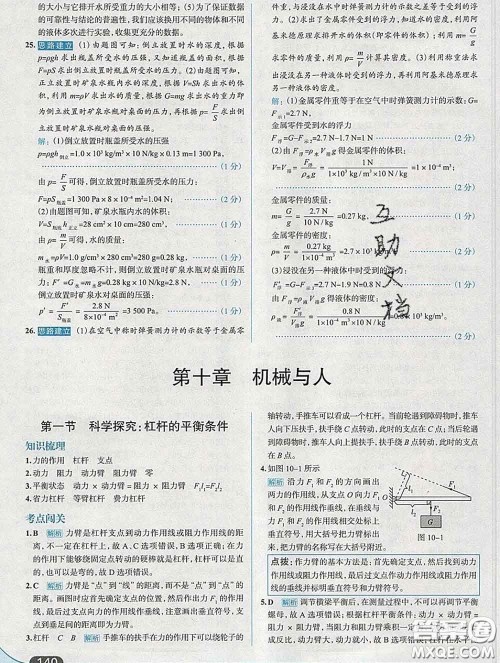 的大小与它排开水所受重力的大小相等;(5)为了保证数据
的可靠性与结论的普遍性,我们应该用不同的物体和不同的
液体多次进行实验,收集更充分的数据。
25. 思路建立 (1)由题图可知:倒立放置时水的深度,根据
p=ρgh求出瓶盖所受的压强,又知道瓶盖的面积,根据
F=pS求出倒立放置时瓶盖所受水的压力。(2)由题图可知,
正立放置时矿泉水瓶内水的深度,根据V=Sh求出水的
体积,利用m=ρV求出水的质量,根据G=mg求出水的重力即
为倒立放置时矿泉水瓶对桌面的压力,再根据p=F/S可求出
倒立放置时矿泉水瓶对桌面的压强。
解:(1)倒立放置时瓶盖所受水的压强
p=ρgh=1.0×10³ kg/m³×10 N/kg×0.13 m=1 300 Pa。
(1分)
由p=F/S可得,倒立放置时瓶盖所受水的压力:
F=pS=1 300 Pa×8×10⁻⁴ m²=1.04 N。 (1分)
(2)由题图可知,矿泉水瓶内水的体积:
V=S瓶底h正立=28 cm²×10 cm=280 cm³。 (1分)
由ρ=m/V可得,水的质量:
m=ρV=1.0 g/cm³×280 cm³=280 g=0.28 kg。 (1分)
瓶重和厚度忽略不计,则倒立放置时矿泉水瓶对桌面的压
力:F′=G=mg=0.28 kg×10 N/kg=2.8 N。 (1分)
倒立放置时矿泉水对桌面的压强:
p′=F′/S瓶盖=2.8 N/(8×10⁻⁴ m²)=3 500 Pa。 (2分)
26. 思路建立 (1)在空气中称时弹簧测力计的示数等于金属零
件的重力,
水中时弹簧测力计的示数之差等于受到
的浮力。(2)求出浮力,知道水的密度,利用阿基米德原理求
金属零件的体积,
求出金属零件的
质量,再利用ρ=m/V计算其密度。(3)利用称重法求
出浸没在另一种液体中时受到的浮力,再利用阿基米德原理求
另一种液体的密度。
解:(1)金属零件重等于在空气中时弹簧测力计的示数:G=
F示=2.7 N。
金属零件受到水的浮力
F浮=G-F示=2.7 N-1.7 N=1 N。 (2分)
(2)由F浮=ρ水V排g得金属零件的体积:
V=V排=F浮/(ρ水g)=1 N/(1×10³ kg/m³×10 N/kg)=1×10⁻⁴ m³。 (2分)
金属零件的质量:
m=G/g=2.7 N/(10 N/kg)=0.27 kg。
金属零件的密度:
(2分)
(3)浸没在另一种液体中时受到的浮力:
(2分)
液体的密度:
(2分)
互
助
文
档
第十章 机械与人
第一节 科学探究:杠杆的平衡条件
知识梳理
1.力的作用 杠杆 支点
2.动力 阻力 动力臂 阻力臂 零
3.平衡状态 动力×动力臂=阻力×阻力臂 F₁l₁=F₂l₂
4.省力杠杆 等臂杠杆 费力杠杆
考点闯关
1.B 解析 力臂是杠杆支点到动力作用线或阻力作用线的距
离,不一定在杠杆上,故A、C选项错误,B选项正确;在力
的作用下能够绕固定点转动的硬棒就是杠杆,可以是直的,
也可以是弯的,故D选项错误。
2.C 解析 力臂是“点”到“线”的距离,而不是“点”到“点”的
距离。画图时应首先确定支点的位置,然后作出动力作用
线或阻力作用线,故A、B、D选项错误,C选项正确。支点到
支点之间的垂直距离即为力臂。
3.杠杆 C B 解析 手推车的扶手在力的作用下可以绕轮子的
轴转动,手推车可以看成一个杠杆。当前轮遇到障碍物时,推车
人向下压扶手,扶手绕C点转动,此时的支点在C点;当后轮
遇到障碍物时,推车人向上提扶手,扶手绕B点转动,此时的支点
在B点。
4.如图10-1所示
解析 沿力F₁和F₂的方向画出
两力的作用线,从支点O向力F₁
和F₂的作用线作相交处标上
垂直符号,用大括号把力臂括出
来,把力臂的名称写在大括号附近。
F₁
F₂
G
图10-1
点拨:作力臂的基本方法是:首先确定支点,然后找到动力
作用线和阻力作用线,最后过支点作动力作用线和阻力作用线
的垂线并标明垂直符号和力臂符号。
5.D 解析 调节横梁平衡后,在测量过程中,不可以再调节平衡
螺母,
140
答案圈
MXQE.COM